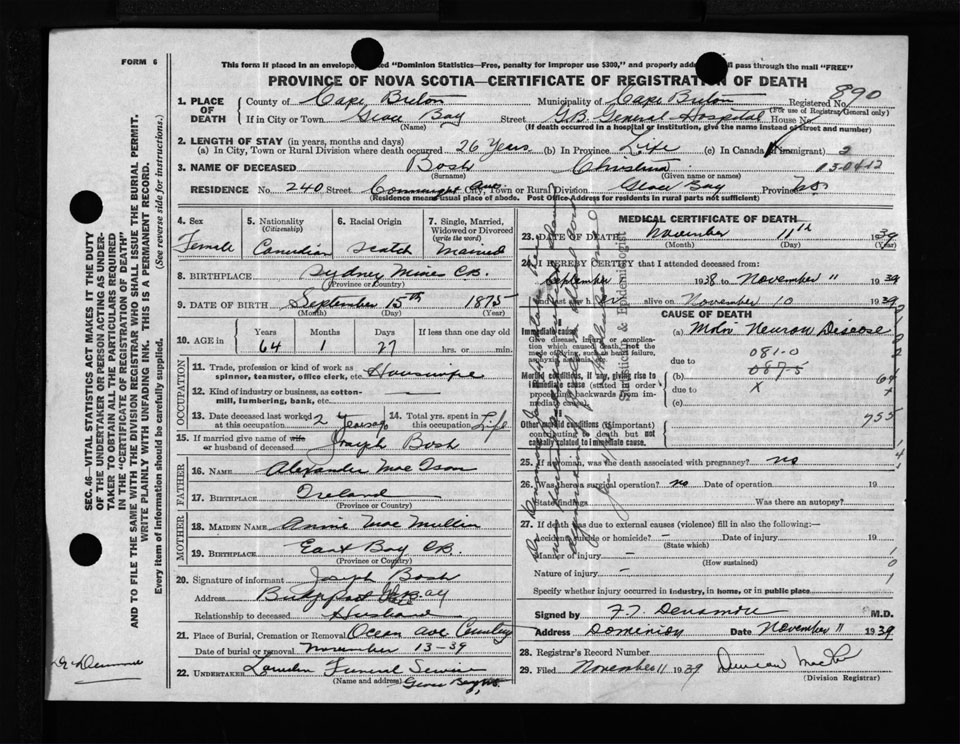 FORM 6
This form if placed in an envelope, "Dominion Statistics—Free, penalty for improper use $300," and properly pass through the mail "FREE"
PROVINCE OF NOVA SCOTIA—CERTIFICATE OF REGISTRATION OF DEATH
890
1. PLACE OF DEATH County of Cape Breton Municipality of Cape Breton Registered No.
(For use of Registrar General only)
If in City or Town Glace Bay Street G.B. General Hospital House No.
(Name) (If death occurred in a hospital or institution, give the name instead of street and number)
2. LENGTH OF STAY (in years, months and days)
(a) In City, Town or Rural Division where death occurred 26 Years (b) In Province Life (c) In Canada if immigrant) 2
3. NAME OF DECEASED Bosh Christina
(Surname) (Given name or names)
RESIDENCE No. 240 Street Connaught Ave. City, Town or Rural Division Glace Bay Province N.S.
(Residence means usual place of abode. Post Office Address for residents in rural parts not sufficient)
4. Sex Female
5. Nationality (Citizenship) Canadian
6. Racial Origin Scotch
7. Single, Married, Widowed or Divorced (write the word) Married
8. BIRTHPLACE Sydney Mines C.B.
(Province or Country)
9. DATE OF BIRTH September 15th 1875
(Month) (Day) (Year)
10. AGE in Years 64 Months 1 Days 27 If less than one day old
hrs. or min.
OCCUPATION
11. Trade, profession or kind of work as spinner, teamster, office clerk, etc. Housewife
12. Kind of industry or business, as cotton-mill, lumbering, bank, etc. —
13. Date deceased last worked at this occupation 2 years ago
14. Total yrs. spent in this occupation Life
15. If married give name of wife or husband of deceased Joseph Bosh
FATHER
16. NAME Alexander
17. BIRTHPLACE Ireland
(Province or Country)
MOTHER
18. MAIDEN NAME Annie Mac Mullin
19. BIRTHPLACE East Bay C.B.
(Province or Country)
20. Signature of informant Joseph Bosh
Address Bay
Relationship to deceased Husband
21. Place of Burial, Cremation or Removal Ocean Ave Cemetery
Date of burial or removal November 13-39
22. UNDERTAKER Funeral Service
(Name and address) Glace Bay N.S.
MEDICAL CERTIFICATE OF DEATH
23. DATE OF DEATH November 11th 1939
(Month) (Day) (Year)
24. I HEREBY CERTIFY that I attended deceased from:
September 1938 to November 11 1939
and last saw her alive on November 10 1939
CAUSE OF DEATH
Immediate cause
Give disease, injury or complication which caused death, not the mode of dying, such as heart failure, asphyxia, asthenia, etc.
(a) Motor Neuron Disease
081-0
due to 087-5
Morbid conditions, if any, giving rise to immediate cause (stated in order proceeding backwards from immediate cause)
(b) x
due to
(c)
64
755
Other morbid conditions (if important) contributing to death but not causally related to immediate cause.
Statistician & Epidemiologist
25. If a woman, was the death associated with pregnancy? no
26. Was there a surgical operation? no Date of operation 19
State findings Was there an autopsy?
27. If death was due to external causes (violence) fill in also the following:—
Accident, suicide or homicide? — Date of injury 19
(State which)
Manner of injury —
(How sustained)
Nature of injury —
Specify whether injury occurred in industry, in home, or in public place
Signed by F. T. Densmore M.D.
Address Dominion Date November 11 1939
28. Registrar's Record Number
29. Filed November 11 1939 Duncan
(Division Registrar)
SEC. 46—VITAL STATISTICS ACT MAKES IT THE DUTY
OF THE UNDERTAKER OR PERSON ACTING AS UNDER-
TAKER TO OBTAIN ALL THE PARTICULARS REQUIRED
IN THE "CERTIFICATE OF REGISTRATION OF DEATH"
AND TO FILE THE SAME WITH THE DIVISION REGISTRAR WHO SHALL ISSUE THE BURIAL PERMIT.
WRITE PLAINLY WITH UNFADING INK. THIS IS A PERMANENT RECORD.
Every item of information should be carefully supplied. (See reverse side for instructions.)